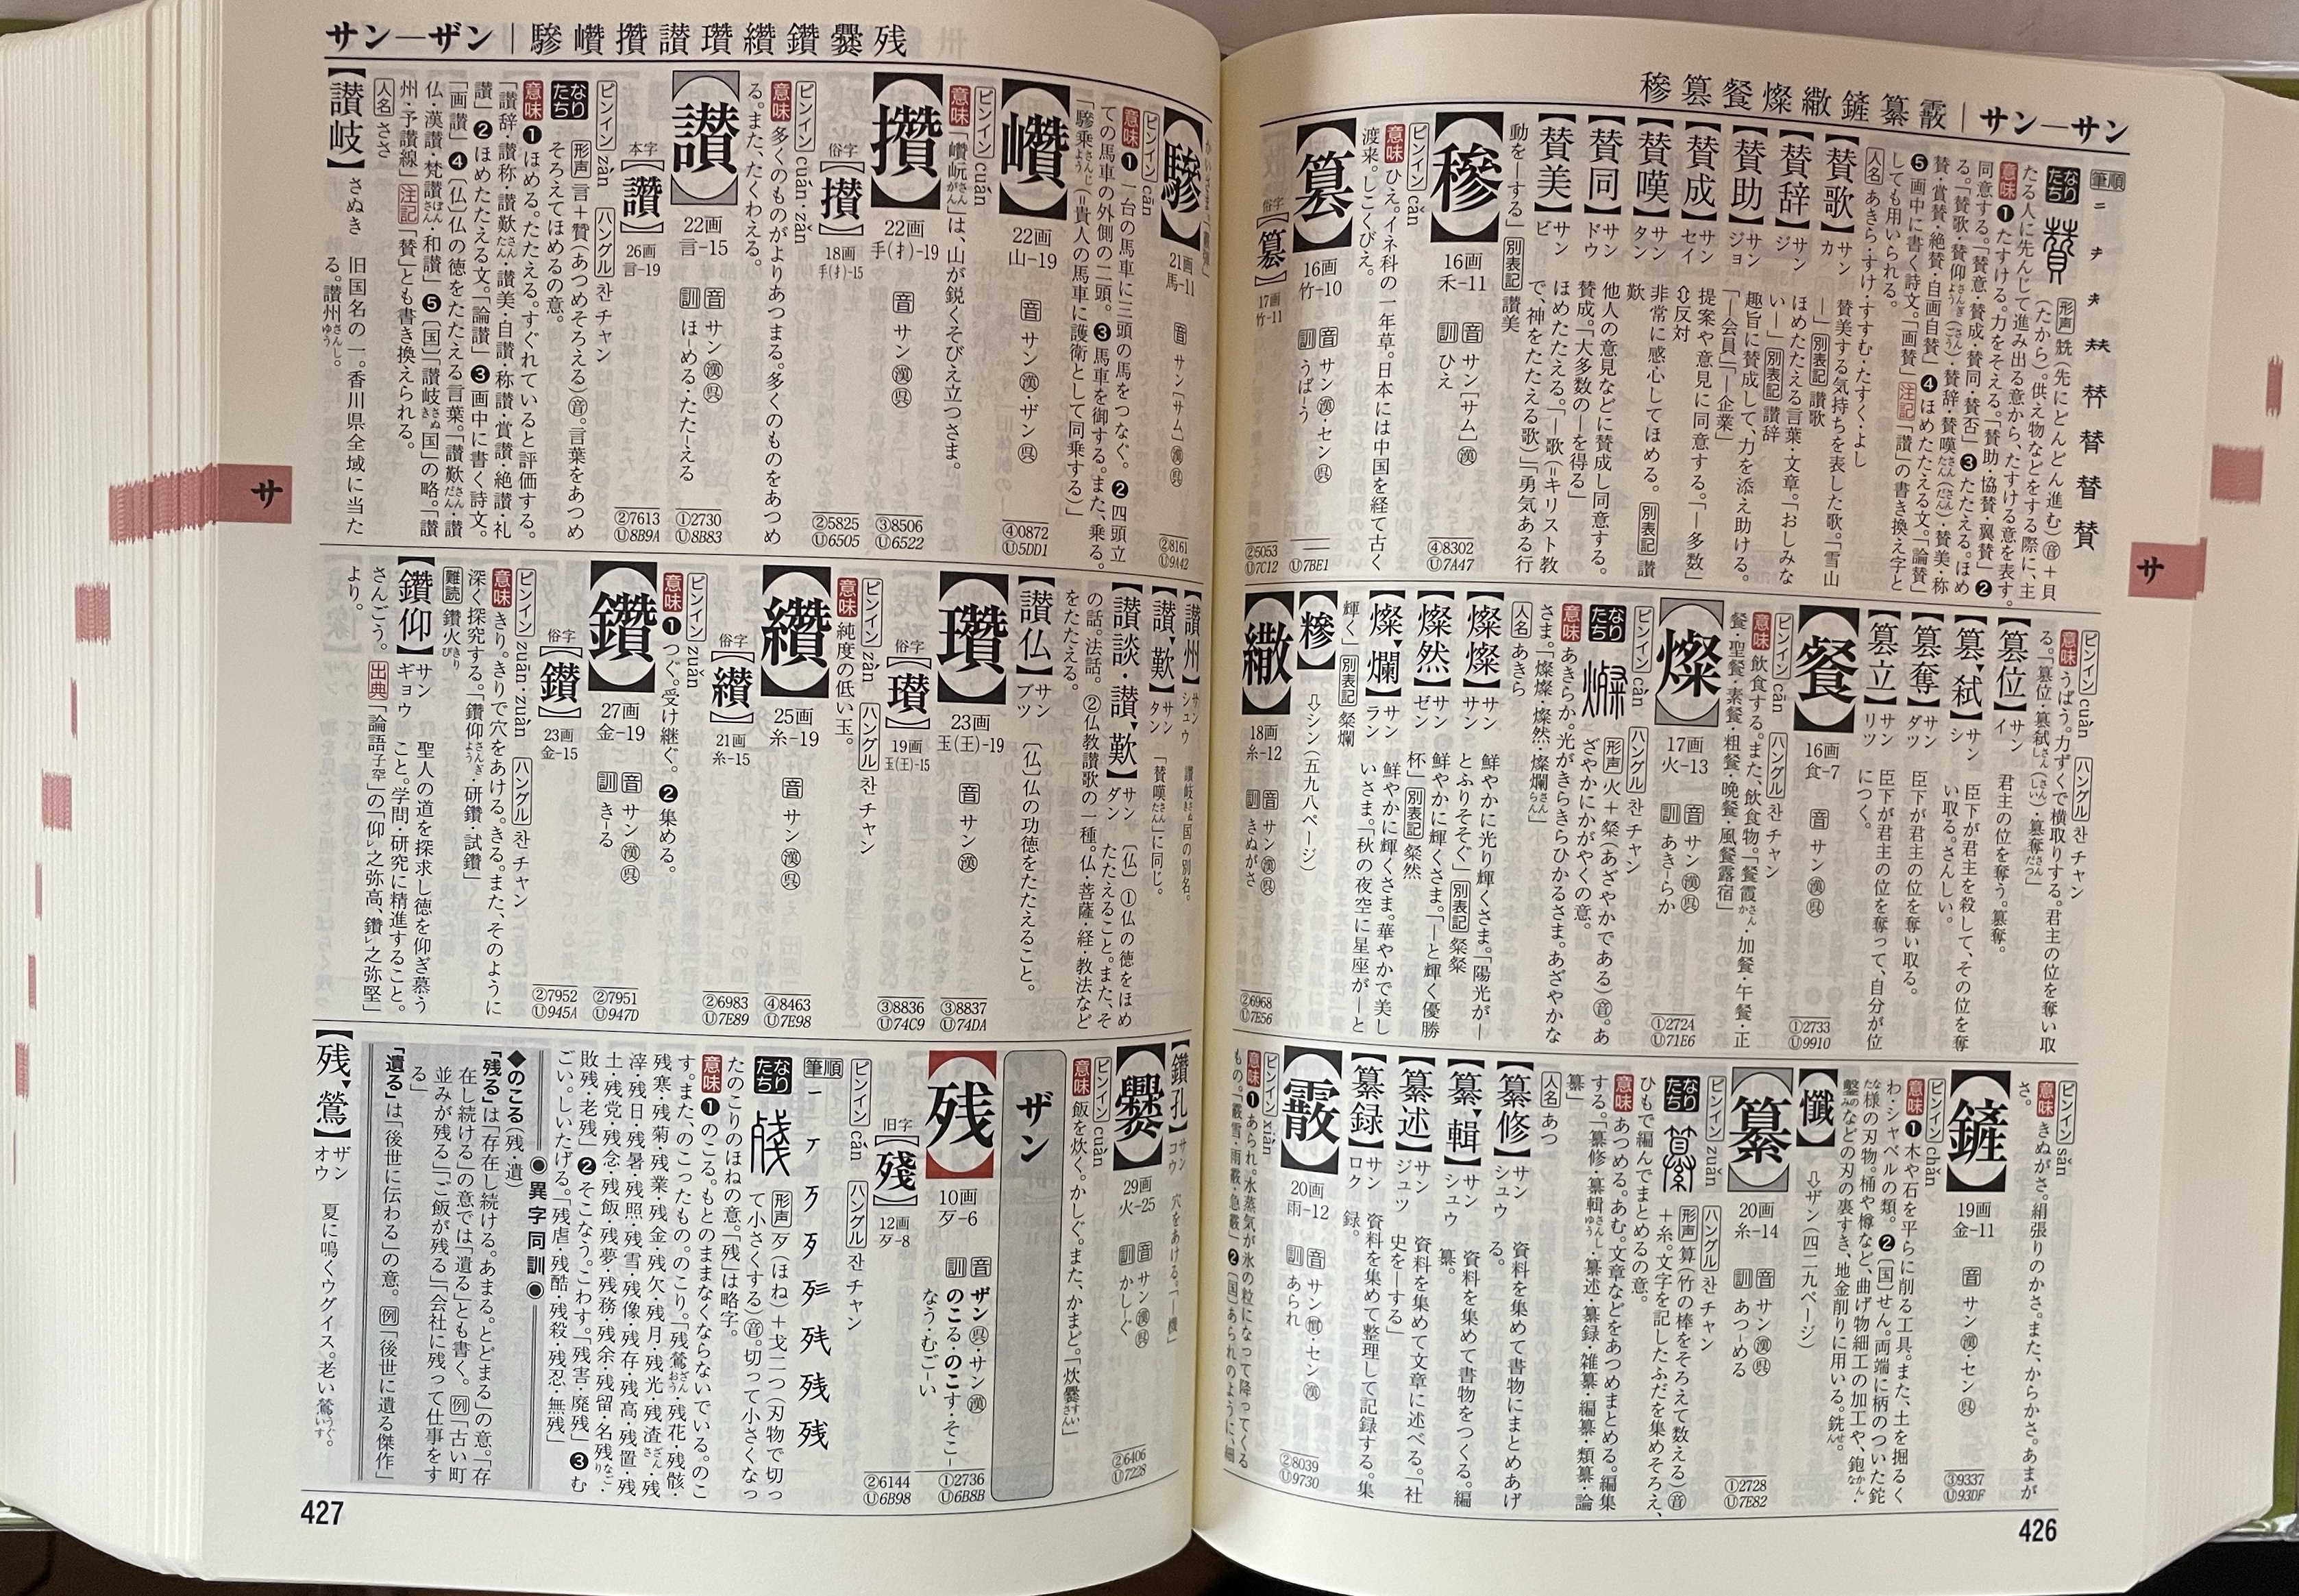 穇篡餐燦繖鏟纂霰｜サン―サン
筆順
なりたち
形声 兟(先にどんどん進む)音＋貝
(たから)。供え物などをする際に、主
たる人に先んじて進み出る意から、たすける意を表す。
意味 ❶たすける。力をそえる。「賛助・協賛・翼賛」❷
同意する。「賛意・賛成・賛同・賛否」❸たたえる。ほめ
る。「賛歌・賛仰・賛辞・賛嘆・賛美・称
賛・賞賛・絶賛・自画自賛」❹ほめたたえる文。「論賛」
❺画中に書く詩文。「画賛」注記「讃」の書き換え字と
しても用いられる。
人名 あきら・すけ・すすむ・たすく・よし
【賛歌】サンカ 賛美する気持ちを表した歌。「雪山
―」別表記 讃歌
【賛辞】サンジ ほめたたえる言葉・文章。「おしみな
い―」別表記 讃辞
【賛助】サンジョ 趣旨に賛成して、力を添え助ける。
「―会員」「―企業」
【賛成】サンセイ 提案や意見に同意する。「―多数」
⇔反対
【賛嘆】サンタン 非常に感心してほめる。別表記 讃
歎
【賛同】サンドウ 他人の意見などに賛成し同意する。
賛成。「大多数の―を得る」
【賛美】サンビ ほめたたえる。「―歌(＝キリスト教
で、神をたたえる歌)」「勇気ある行
動を―する」別表記 讃美
【穇】16画 禾-11 音 サン[サム]漢 訓 ひえ ④8302 U7A47
ピンイン cǎn
意味 ひえ。イネ科の一年草。日本には中国を経て古く
渡来。しこくびえ。
【篡】16画 竹-10 音 サン漢・セン呉 訓 うば-う U7BE1
俗字【簒】17画 竹-11 ②5053 U7C12
ピンイン cuàn ハングル 찬 チャン
意味 うばう。力ずくで横取りする。君主の位を奪い取
る。「篡位・篡弑・篡奪」
【篡位】サンイ 君主の位を奪う。篡奪。
【篡弑】サンシ 臣下が君主を殺して、その位を奪
い取る。さんしい。
【篡奪】サンダツ 臣下が君主の位を奪い取る。
【篡立】サンリツ 臣下が君主の位を奪って、自分が位
につく。
【餐】16画 食-7 音 サン漢呉 ①2733 U9910
ピンイン cān ハングル 찬 チャン
意味 飲食する。また、飲食物。「餐霞・加餐・午餐・正
餐・聖餐・素餐・粗餐・晩餐・風餐露宿」
【燦】17画 火-13 音 サン漢呉 訓 あき-らか ①2724 U71E6
ピンイン càn ハングル 찬 チャン
なりたち 形声 火＋粲(あざやかである)音。あ
ざやかにかがやくの意。
意味 あきらか。光がきらきらひかるさま。あざやかな
さま。「燦燦・燦然・燦爛」
人名 あきら
【燦燦】サンサン 鮮やかに光り輝くさま。「陽光が―
とふりそそぐ」別表記 粲粲
【燦然】サンゼン 鮮やかに輝くさま。「―と輝く優勝
杯」別表記 粲然
【燦爛】サンラン 鮮やかに輝くさま。華やかで美し
いさま。「秋の夜空に星座が―と
輝く」別表記 粲爛
【糝】⇩シン(五九八ページ)
【繖】18画 糸-12 音 サン漢呉 訓 きぬがさ ②6968 U7E56
ピンイン sǎn
意味 きぬがさ。絹張りのかさ。また、からかさ。あまが
さ。
【鏟】19画 金-11 音 サン漢・セン呉 ③9337 U93DF
ピンイン chǎn
意味 ❶木や石を平らに削る工具。また、土を掘るく
わ・シャベルの類。❷[国]せん。両端に柄のついた鉈
様の刃物。桶や樽など、曲げ物細工の加工や、鉋・
鑿などの刃の裏すき、地金削りに用いる。銑。
【懺】⇩ザン(四二九ページ)
【纂】20画 糸-14 音 サン漢呉 訓 あつ-める ①2728 U7E82
ピンイン zuǎn ハングル 찬 チャン
なりたち 形声 算(竹の棒をそろえて数える)音
＋糸。文字を記したふだを集めそろえ、
ひもで編んでまとめるの意。
意味 あつめる。あむ。文章などをあつめまとめる。編集
する。「纂修・纂輯・纂述・纂録・雑纂・編纂・類纂・論
纂」
人名 あつ
【纂修】サンシュウ 資料を集めて書物にまとめあげ
る。
【纂輯】サンシュウ 資料を集めて書物をつくる。編
纂。
【纂述】サンジュツ 資料を集めて文章に述べる。「社
史を―する」
【纂録】サンロク 資料を集めて整理して記録する。集
録。
【霰】20画 雨-12 音 サン慣・セン漢 訓 あられ ②8039 U9730
ピンイン xiàn
意味 ❶あられ。水蒸気が氷の粒になって降ってくる
もの。「霰雪・雨霰・急霰」❷[国]あられのように、細
サ
426
サン―ザン｜驂巑攢讃瓚纘鑽爨残
【驂】21画 馬-11 音 サン[サム]漢呉 ②8161 U9A42
ピンイン cān
意味 ❶一台の馬車に三頭の馬をつなぐ。❷四頭立
ての馬車の外側の二頭。❸馬車を御する。また、乗る。
「驂乗(＝貴人の馬車に護衛として同乗する)」
【巑】22画 山-19 音 サン漢・ザン呉 ④0872 U5DD1
ピンイン cuán
意味「巑岏」は、山が鋭くそびえ立つさま。
【攢】22画 手(扌)-19 音 サン漢呉 ③8506 U6522
俗字【攅】18画 手(扌)-15 ②5825 U6505
ピンイン cuán・zǎn
意味 多くのものがよりあつまる。多くのものをあつめ
る。また、たくわえる。
【讃】22画 言-15 音 サン漢呉 訓 ほ-める・たた-える ①2730 U8B83
本字【讚】26画 言-19 ②7613 U8B9A
ピンイン zàn ハングル 찬 チャン
なりたち 形声 言＋贊(あつめそろえる)音。言葉をあつめ
そろえてほめるの意。
意味 ❶ほめる。たたえる。すぐれていると評価する。
「讃辞・讃称・讃歎・讃美・自讃・称讃・賞讃・絶讃・礼
讃」❷ほめたたえる文。「論讃」❸画中に書く詩文。
「画讃」❹[仏]仏の徳をたたえる言葉。「讃歎・讃
仏・漢讃・梵讃・和讃」❺[国]「讃岐国」の略。「讃
州・予讃線」注記「賛」とも書き換えられる。
人名 ささ
【讃岐】さぬき 旧国名の一。香川県全域に当た
る。讃州。
【讃州】サンシュウ 讃岐国の別名。
【讃歎】サンタン 「賛嘆」に同じ。
【讃談・讃歎】サンダン [仏]①仏の徳をほめ
たたえること。また、そ
の話。法話。②仏教讃歌の一種。仏・菩薩・経・教法など
をたたえる。
【讃仏】サンブツ [仏]仏の功徳をたたえること。
【瓚】23画 玉(王)-19 音 サン漢 ③8837 U74DA
俗字【瓉】19画 玉(王)-15 ③8836 U74C9
ピンイン zàn ハングル 찬 チャン
意味 純度の低い玉。
【纘】25画 糸-19 音 サン漢呉 ④8463 U7E98
俗字【纉】21画 糸-15 ②6983 U7E89
ピンイン zuǎn
意味 ❶つぐ。受け継ぐ。❷集める。
【鑽】27画 金-19 音 サン漢呉 訓 き-る ②7951 U947D
俗字【鑚】23画 金-15 ②7952 U945A
ピンイン zuàn・zuān ハングル 찬 チャン
意味 きり。きりで穴をあける。きる。また、そのように
深く探究する。「鑽仰・研鑽・試鑽」
難読 鑽火
【鑽仰】サンギョウ 聖人の道を探求し徳を仰ぎ慕う
こと。学問・研究に精進すること。
さんごう。出典「論語子罕」の「仰レ之弥高、鑽レ之弥堅」
より。
【鑽孔】サンコウ 穴をあける。「―機」
【爨】29画 火-25 音 サン漢呉 訓 かし-ぐ ②6406 U7228
ピンイン cuàn
意味 飯を炊く。かしぐ。また、かまど。「炊爨」
ザン
【残】10画 歹-6 音 ザン呉・サン漢 訓 のこる・のこす・そこ-なう・むご-い ①2736 U6B8B
旧字【殘】12画 歹-8 ②6144 U6B98
ピンイン cán ハングル 잔 チャン
筆順
なりたち 形声 歹(ほね)＋戈二つ(刃物で切っ
て小さくする)音。切って小さくなっ
たのこりのほねの意。「残」は略字。
意味 ❶のこる。もとのままなくならないでいる。のこ
す。また、のこったもの。のこり。「残鶯・残花・残骸・
残寒・残菊・残業・残金・残欠・残月・残光・残渣・残
滓・残日・残暑・残照・残雪・残像・残存・残高・残置・残
土・残党・残念・残飯・残夢・残務・残余・残留・名残・
敗残・老残」❷そこなう。こわす。「残害・廃残」❸む
ごい。しいたげる。「残虐・残酷・残殺・残忍・無残」
●異字同訓●
◆のこる(残・遺)
「残る」は「存在し続ける。あまる。とどまる」の意。「存
在し続ける」の意では「遺る」とも書く。例「古い町
並みが残る」「ご飯が残る」「会社に残って仕事をす
る」
「遺る」は「後世に伝わる」の意。例「後世に遺る傑作」
【残鶯】ザンオウ 夏に鳴くウグイス。老い鶯。
サ
427